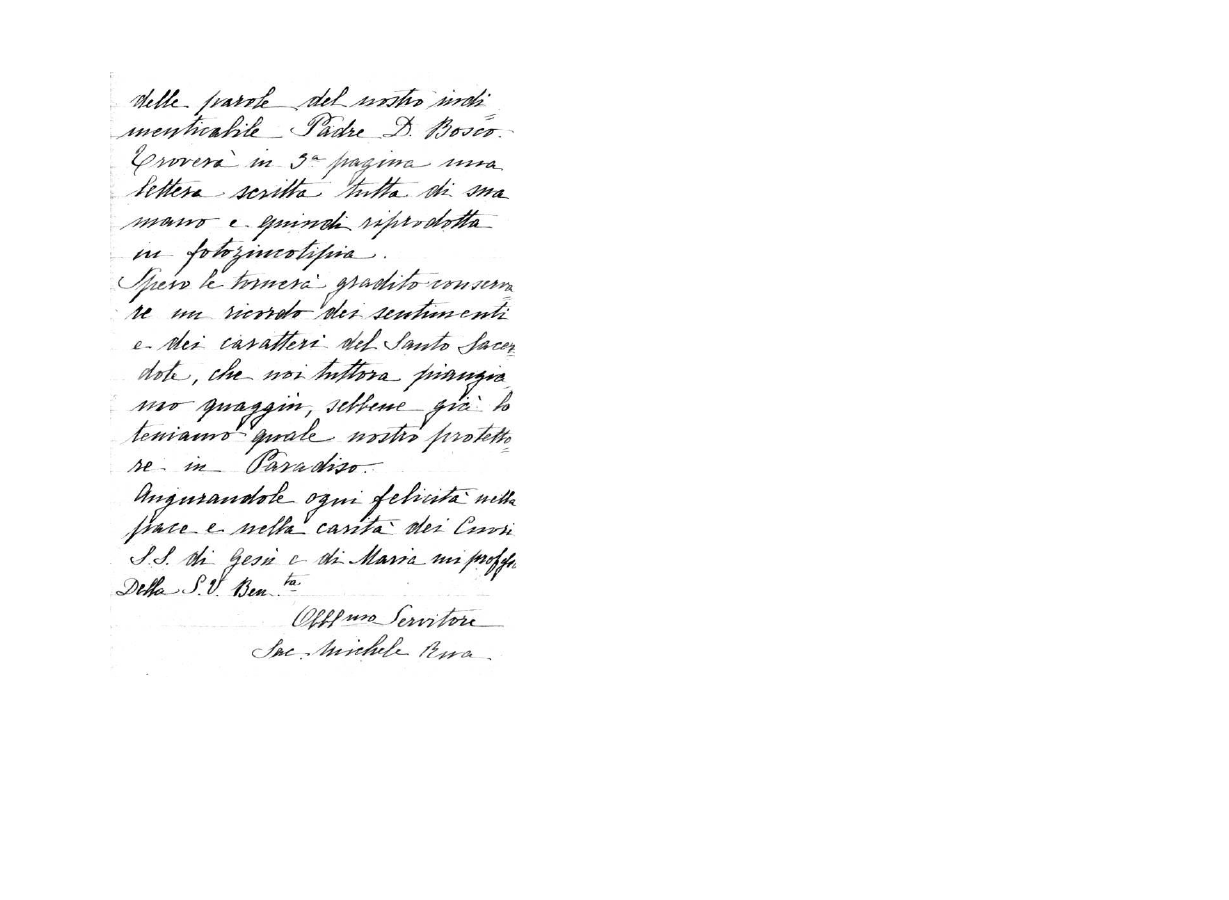 delle parole del nostro indi=
menticabile Padre D. Bosco.
Troverà in 3ª pagina una
lettera scritta tutta di sua
mano e quindi riprodotta
in fotozincotipia.
Spero le tornerà gradito conserva=
re un ricordo dei sentimenti
e dei caratteri del Santo Sacer=
dote, che noi tuttora piangia=
mo quaggiù, sebbene già lo
teniamo quale nostro protetto=
re in Paradiso.
Augurandole ogni felicità nella
pace e nella carità dei Cuori
S.S. di Gesù e di Maria mi proffo
Della S.V. Ben.ta
Obblmo Servitore
Sac. Michele Rua.